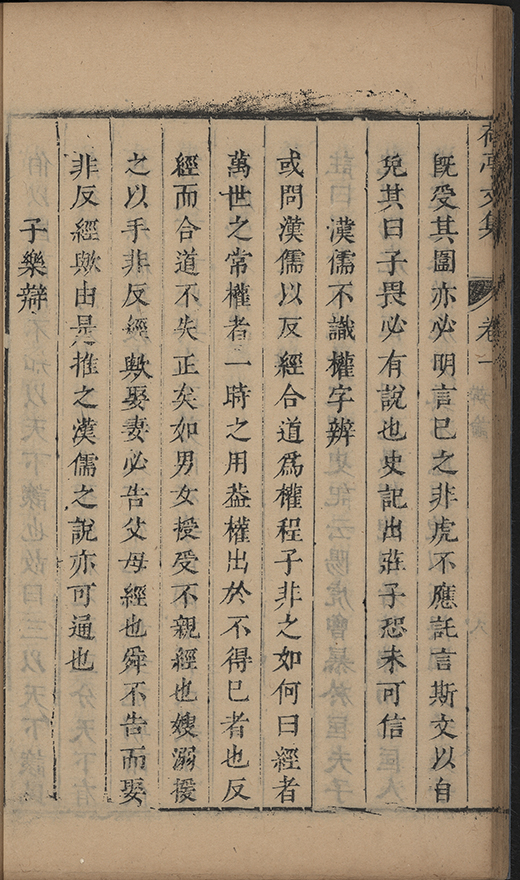 亭文集 卷一
旣受其圍亦必明言已之非虎不應託言斯文以自
免其曰子畏必有說也史記出莊子恐未可信
漢儒不識權字辨
或問漢儒以反經合道爲權程子非之如何曰經者
萬世之常權者一時之用葢權出於不得已者也反
經而合道不失正矣如男女授受不親經也嫂溺援
之以手非反經歟娶妻必告父母經也舜不告而娶
非反經歟由是推之漢儒之說亦可通也
子樂辯